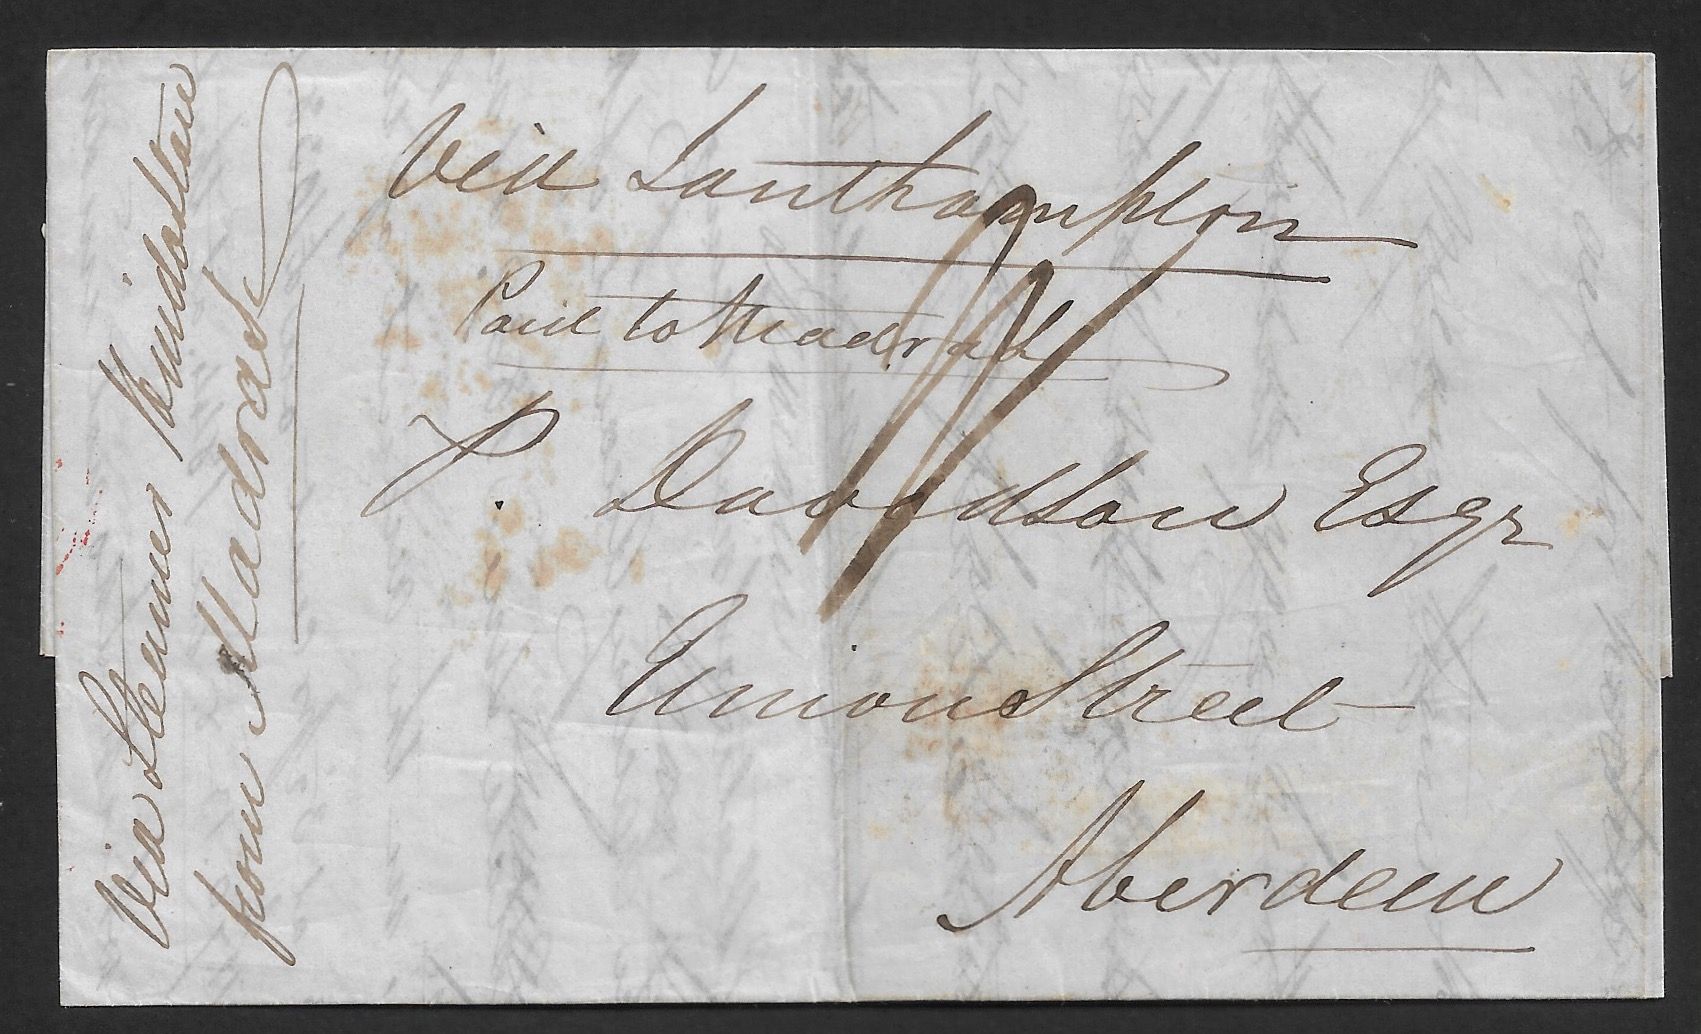 Via Southampton
Paid to Madras
P. Davidson Esqr
Union Street
Aberdeen
Via Steamer Hindostan
from Madras